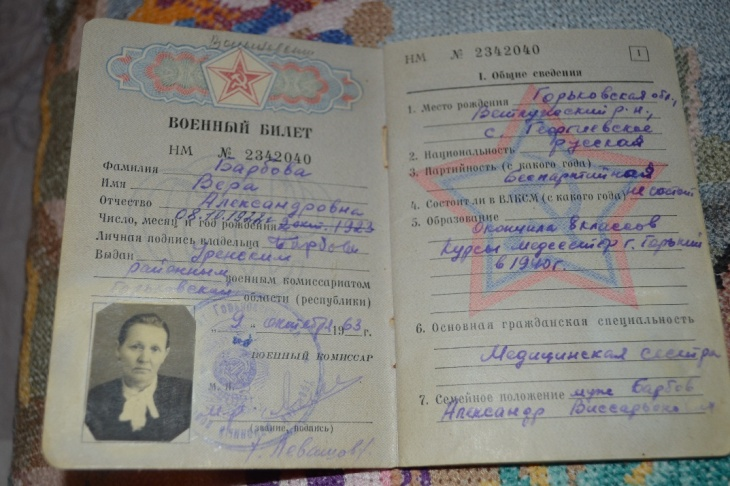 ВОЕННЫЙ БИЛЕТ
НМ № 2342040
Фамилия Барбова
Имя Вера
Отчество Александровна
Число, месяц и год рождения
Личная подпись владельца Барбова
Выдан Уренским
районным военным комиссариатом
Горьковской области (республики)
„9" октября 1963 г.
ВОЕННЫЙ КОМИССАР
М. П.
(звание, подпись)
НМ № 2342040
1
I. Общие сведения
1. Место рождения Горьковская обл.,
Ветлужский р-н,
с. Георгиевское
2. Национальность русская
3. Партийность (с какого года)
беспартийная
4. Состоит ли в ВЛКСМ (с какого года) не состоит
5. Образование
Окончила 8 классов
Курсы медсестер г. Горький
в 1940 г.
6. Основная гражданская специальность
Медицинская сестра
7. Семейное положение муж Барбов
Александр